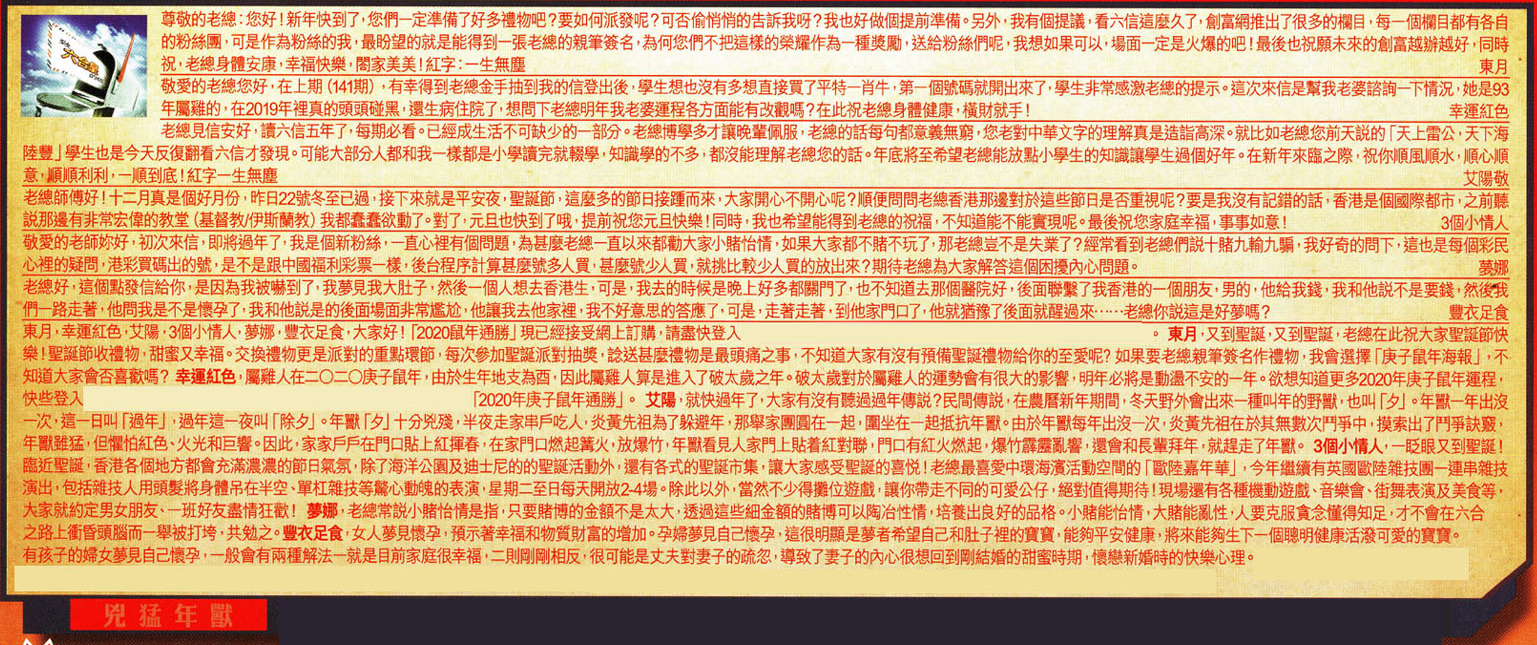 尊敬的老總:您好!新年快到了,您們一定準備了好多禮物吧?要如何派發呢?可否偷悄悄的告訴我呀?我也好做個提前準備。另外,我有個提議,看六信這麼久了,創富網推出了很多的欄目,每一個欄目都有各自
的粉絲團,可是作為粉絲的我,最盼望的就是能得到一張老總的親筆簽名,為何您們不把這樣的榮耀作為一種獎勵,送給粉絲們呢,我想如果可以,場面一定是火爆的吧!最後也祝願未來的創富越辦越好,同時
祝,老總身體安康,幸福快樂,閤家美美!紅字:一生無塵 東月
敬愛的老總您好,在上期(141期),有幸得到老總金手抽到我的信登出後,學生想也沒有多想直接買了平特一肖牛,第一個號碼就開出來了,學生非常感激老總的提示。這次來信是幫我老婆諮詢一下情況,她是93
年屬雞的,在2019年裡真的頭頭碰黑,還生病住院了,想問下老總明年我老婆運程各方面能有改觀嗎?在此祝老總身體健康,橫財就手! 幸運紅色
老總見信安好,讀六信五年了,每期必看。已經成生活不可缺少的一部分。老總博學多才讓晚輩佩服,老總的話每句都意義無窮,您老對中華文字的理解真是造詣高深。就比如老總您前天説的「天上雷公,天下海
陸豐」學生也是今天反復翻看六信才發現。可能大部分人都和我一樣都是小學讀完就輟學,知識學的不多,都沒能理解老總您的話。年底將至希望老總能放點小學生的知識讓學生過個好年。在新年來臨之際,祝你順風順水,順心順
意,順順利利,一順到底!紅字一生無塵 艾陽敬
老總師傅好!十二月真是個好月份,昨日22號冬至已過,接下來就是平安夜,聖誕節,這麼多的節日接踵而來,大家開心不開心呢?順便問問老總香港那邊對於這些節日是否重視呢?要是我沒有記錯的話,香港是個國際都市,之前聽
説那邊有非常宏偉的教堂(基督教/伊斯蘭教)我都蠢蠢欲動了。對了,元旦也快到了哦,提前祝您元旦快樂!同時,我也希望能得到老總的祝福,不知道能不能實現呢。最後祝您家庭幸福,事事如意! 3個小情人
敬愛的老師妳好,初次來信,即將過年了,我是個新粉絲,一直心裡有個問題,為甚麼老總一直以來都勸大家小賭怡情,如果大家都不賭不玩了,那老總豈不是失業了?經常看到老總們説十賭九輸九騙,我好奇的問下,這也是每個彩民
心裡的疑問,港彩買碼出的號,是不是跟中國福利彩票一樣,後台程序計算甚麼號多人買,甚麼號少人買,就挑比較少人買的放出來?期待老總為大家解答這個困擾內心問題。 夢娜
老總好,這個點發信給你,是因為我被嚇到了,我夢見我大肚子,然後一個人想去香港生,可是,我去的時候是晚上好多都關門了,也不知道去那個醫院好,後面聯繫了我香港的一個朋友,男的,他給我錢,我和他説不是要錢,然後我
們一路走著,他問我是不是懷孕了,我和他説是的後面場面非常尷尬,他讓我去他家裡,我不好意思的答應了,可是,走著走著,到他家門口了,他就猶豫了後面就醒過來……老總你説這是好夢嗎? 豐衣足食
東月,幸運紅色,艾陽,3個小情人,夢娜,豐衣足食,大家好!「2020鼠年通勝」現已經接受網上訂購,請盡快登入 。東月,又到聖誕,又到聖誕,老總在此祝大家聖誕節快
樂!聖誕節收禮物,甜蜜又幸福。交換禮物更是派對的重點環節,每次參加聖誕派對抽獎,諗送甚麼禮物是最頭痛之事,不知道大家有沒有預備聖誕禮物給你的至愛呢?如果要老總親筆簽名作禮物,我會選擇「庚子鼠年海報」,不
知道大家會否喜歡嗎?幸運紅色,屬雞人在二〇二〇庚子鼠年,由於生年地支為酉,因此屬雞人算是進入了破太歲之年。破太歲對於屬雞人的運勢會有很大的影響,明年必將是動盪不安的一年。欲想知道更多2020年庚子鼠年運程,
快些登入 「2020年庚子鼠年通勝」。艾陽,就快過年了,大家有沒有聽過過年傳説?民間傳説,在農曆新年期間,冬天野外會出來一種叫年的野獸,也叫「夕」。年獸一年出沒
一次,這一日叫「過年」,過年這一夜叫「除夕」。年獸「夕」十分兇殘,半夜走家串戶吃人,炎黃先祖為了躲避年,那舉家團圓在一起,圍坐在一起抵抗年獸。由於年獸每年出沒一次,炎黃先祖在於其無數次鬥爭中,摸索出了鬥爭訣竅,
年獸雖猛,但懼怕紅色、火光和巨響。因此,家家戶戶在門口貼上紅揮春,在家門口燃起篝火,放爆竹,年獸看見人家門上貼着紅對聯,門口有紅火燃起,爆竹霹靂亂響,還會和長輩拜年,就趕走了年獸。3個小情人,一眨眼又到聖誕!
臨近聖誕,香港各個地方都會充滿濃濃的節日氣氛,除了海洋公園及迪士尼的的聖誕活動外,還有各式的聖誕市集,讓大家感受聖誕的喜悦!老總最喜愛中環海濱活動空間的「歐陸嘉年華」,今年繼續有英國歐陸雜技團一連串雜技
演出,包括雜技人用頭髮將身體吊在半空、單杠雜技等驚心動魄的表演,星期二至日每天開放2-4場。除此以外,當然不少得攤位遊戲,讓你帶走不同的可愛公仔,絕對值得期待!現場還有各種機動遊戲、音樂會、街舞表演及美食等,
大家就約定男女朋友、一班好友盡情狂歡!夢娜,老總常説小賭怡情是指,只要賭博的金額不是太大,透過這些細金額的賭博可以陶冶性情,培養出良好的品格。小賭能怡情,大賭能亂性,人要克服貪念懂得知足,才不會在六合
之路上衝昏頭腦而一舉被打垮,共勉之。豐衣足食,女人夢見懷孕,預示著幸福和物質財富的增加。孕婦夢見自己懷孕,這很明顯是夢者希望自己和肚子裡的寶寶,能夠平安健康,將來能夠生下一個聰明健康活潑可愛的寶寶。
有孩子的婦女夢見自己懷孕,一般會有兩種解法一就是目前家庭很幸福,二則剛剛相反,很可能是丈夫對妻子的疏忽,導致了妻子的內心很想回到剛結婚的甜蜜時期,懷戀新婚時的快樂心理。
兇猛年獸